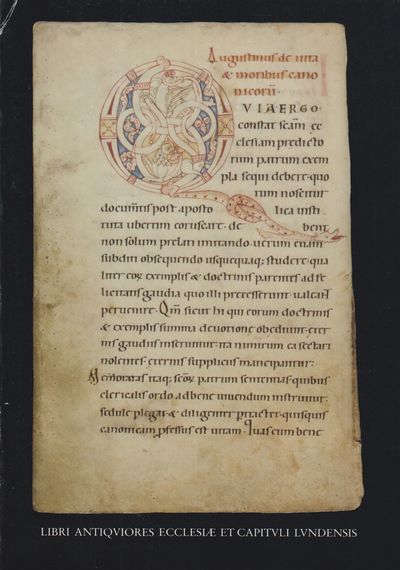 Augustinus de uita
& moribus cano
nicorũ.
VIA ERGO
constat scãm ec
clesiam predicto
rum patrum exem
pla sequi debere. quo
rum noscitur
documtis post aposto lica insti
tuta ubertim coruscare. debent
non solum prelati imitando. uerum etiam
subditi obsequendo usquequaq; studere. qua
liter eoꝝ exemplis & doctrinis parentes ad fe
licitatis gaudia quo illi precesserunt ualeant
peruenire. Qm̃ sicut hi qui eorum doctrinis
& exemplis summa deuotione obediunt. eter
nis gaudiis inseruntur. ita nimirum ea sectari
nolentes. eternis suppliciis mancipantur.
Memoratas itaq; scõꝝ patrum sententias. quibus
clericalis ordo ad bene uiuendum instruitur.
sedule plegat & diligenter ptractet. quisquis
canonicam pfessus est uitam. Quas cum bene
LIBRI ANTIQVIORES ECCLESIÆ ET CAPITVLI LVNDENSIS